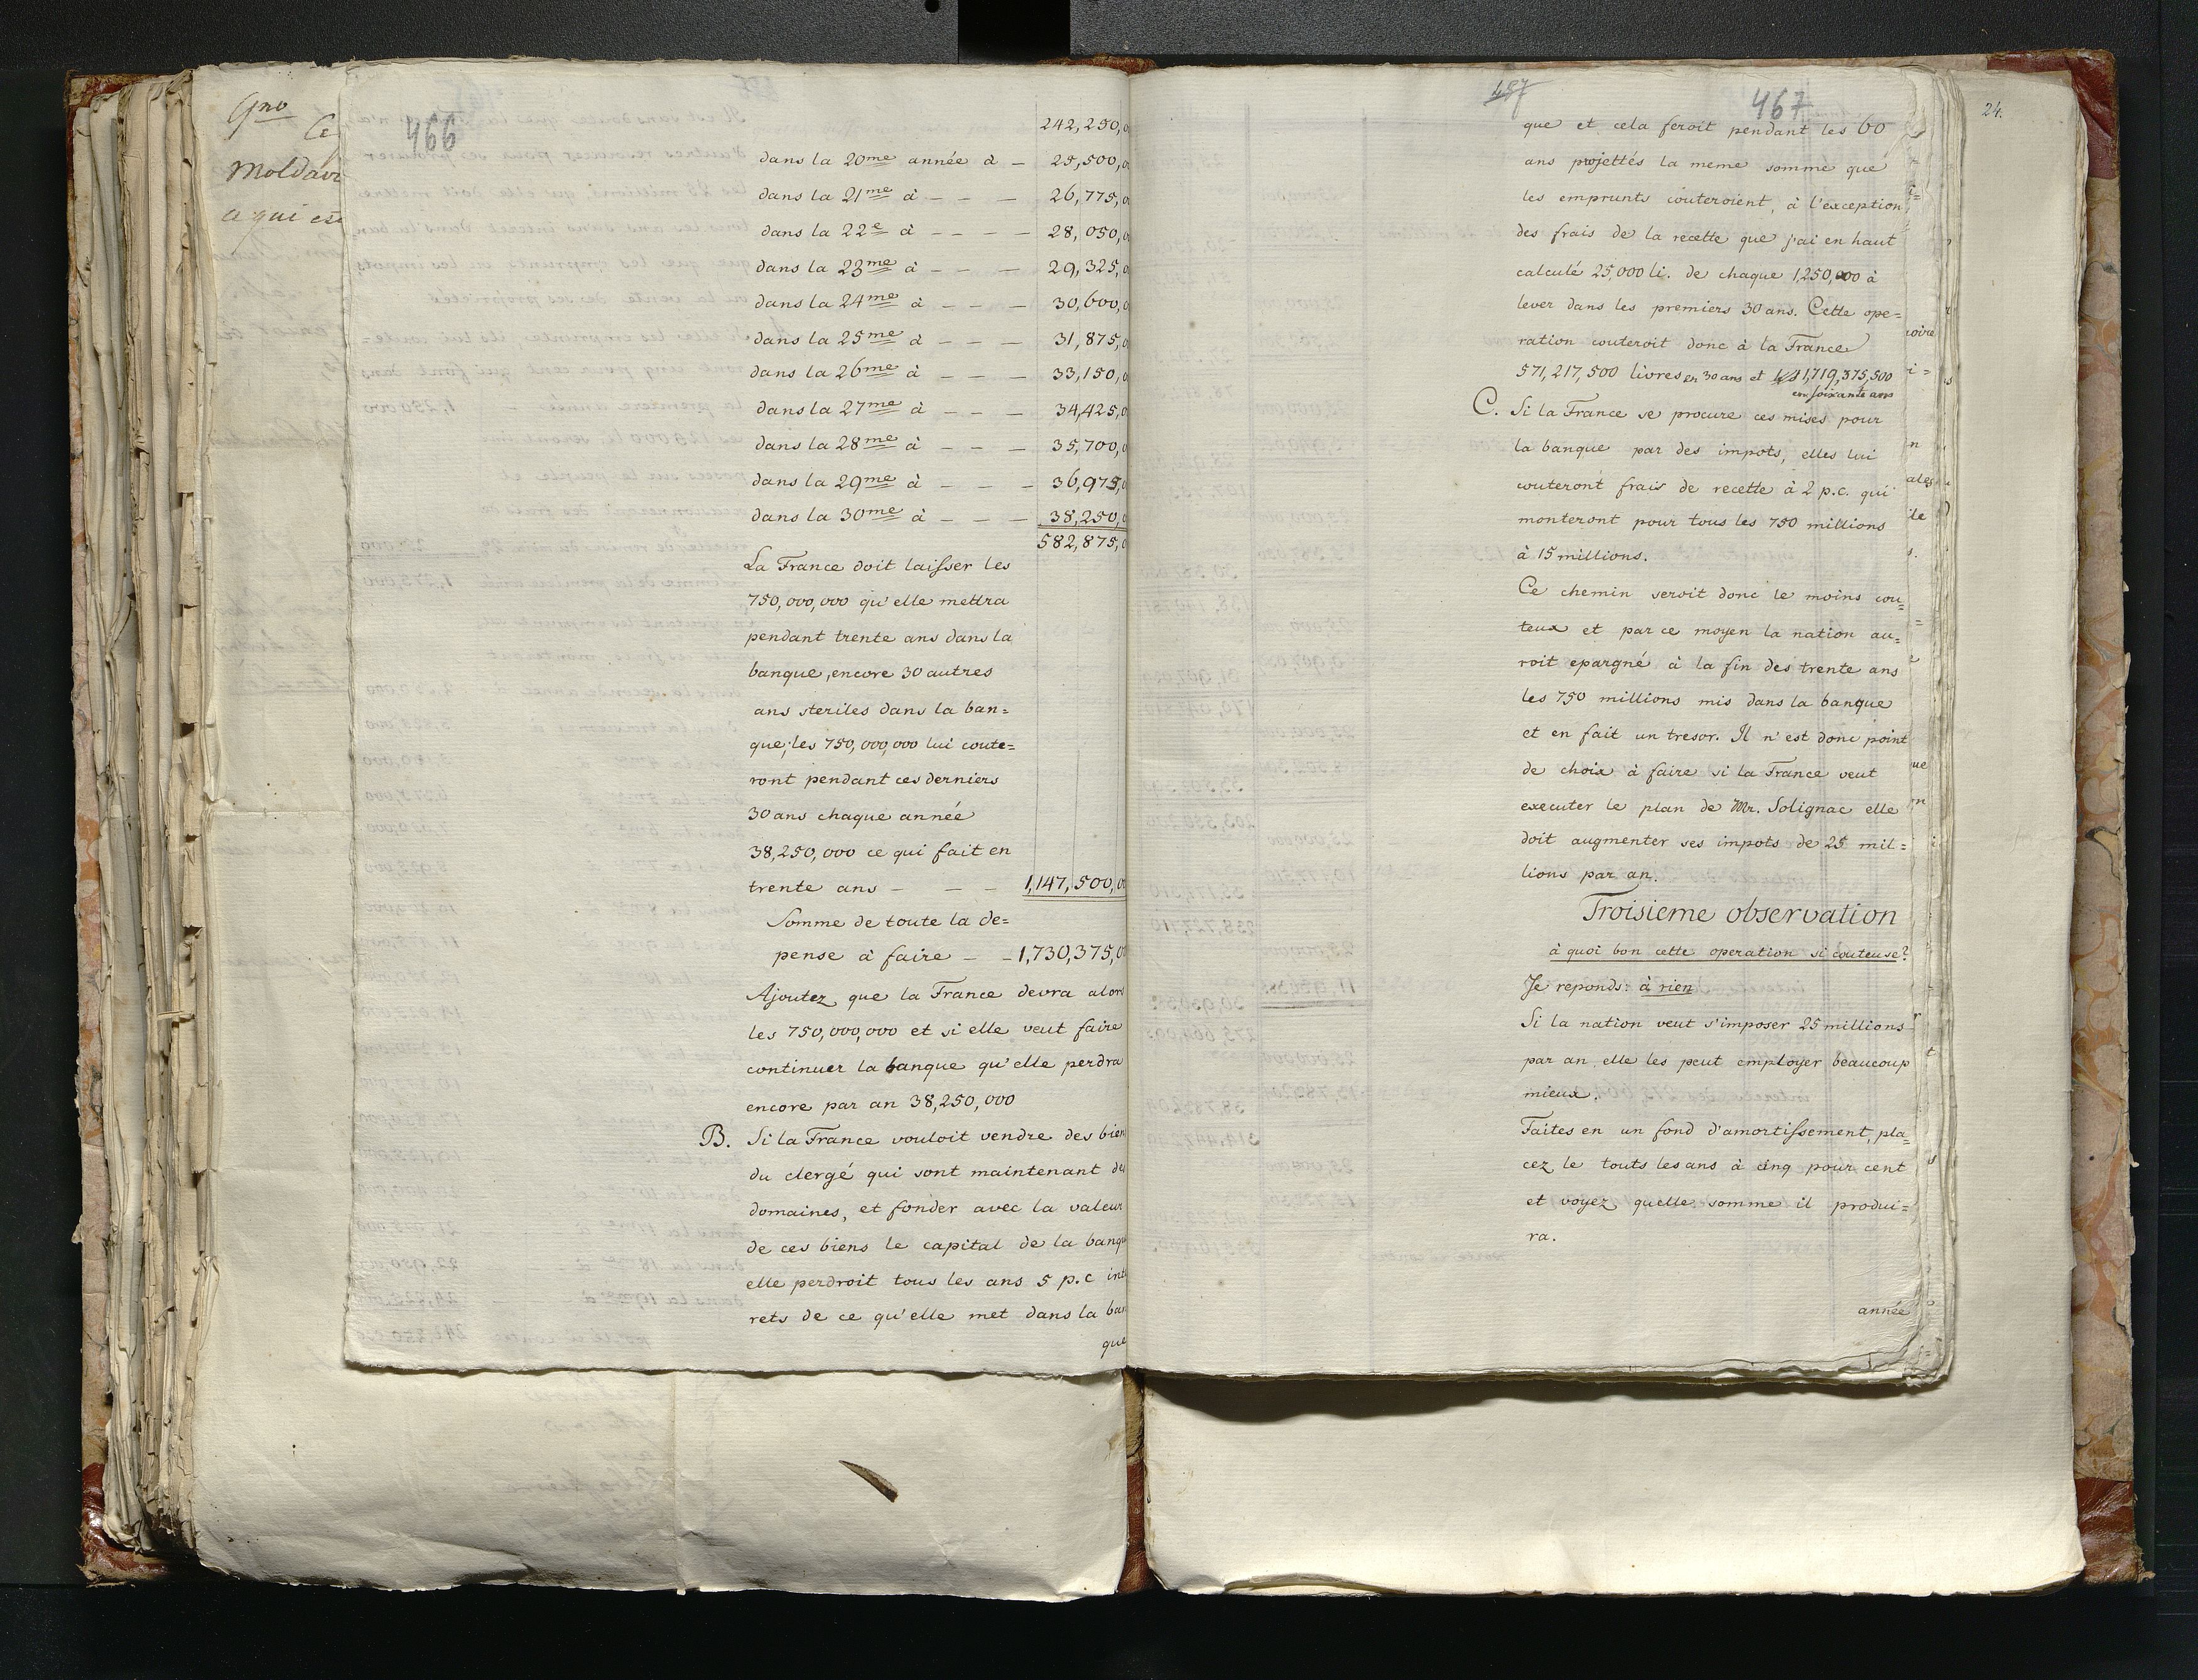 466
242,250,0
dans la 20me année à – 25,500,0
dans la 21me à – – – 26,775,0
dans la 22e à – – – – 28,050,0
dans la 23me à – – – 29,325,0
dans la 24me à – – – 30,600,0
dans la 25me à – – – 31,875,0
dans la 26me à – – – 33,150,0
dans la 27me à – – – 34,425,0
dans la 28me à – – – 35,700,0
dans la 29me à – – – 36,975,0
dans la 30me à – – – 38,250,0
582,875,0
La France doit laisser les
750,000,000 qu'elle mettra
pendant trente ans dans la
banque, encore 30 autres
ans steriles dans la ban=
que; les 750,000,000 lui coute=
ront pendant ces derniers
30 ans chaque année
38,250,000 ce qui fait en
trente ans – – – 1,147,500,00
Somme de toute la de=
pense à faire – – 1,730,375,00
Ajoutez que la France devra alors
les 750,000,000 et si elle veut faire
continuer la banque qu'elle perdra
encore par an 38,250,000
B. Si la France vouloit vendre des bien
du clergé qui sont maintenant du
domaines, et fonder avec la valeur
de ces biens le capital de la banqu
elle perdroit tous les ans 5 p.c inte
rets de ce qu'elle met dans la ban
que
Gno
Ce
Moldavi
a qui est
457
467
que et cela feroit pendant les 60
ans projettés la meme somme que
les emprunts couteroient, à l'exception
des frais de la recette que j'ai en haut
calculé 25,000 li. de chaque 1250,000 à
lever dans les premiers 30 ans. Cette ope=
ration couteroit donc à la France
571,217,500 livres en 30 ans et 1,719,375,500
en soixante ans
C. Si la France se procure ces mises pour
la banque par des impots, elles lui
couteront frais de recette à 2 p.c. qui
monteront pour tous les 750 millions
à 15 millions.
Ce chemin seroit donc le moins cou=
teux et par ce moyen la nation au=
roit epargné à la fin des trente ans
les 750 millions mis dans la banque
et en fait un tresor. Il n'est donc point
de choix à faire si la France veut
executer le plan de Mr. Solignac elle
doit augmenter ses impots de 25 mil=
lions par an.
Troisieme observation
à quoi bon cette operation si couteuse?
Je reponds: à rien
Si la nation veut s'imposer 25 millions
par an, elle les peut employer beaucoup
mieux.
Faites en un fond d'amortissement, pla=
cez le touts les ans à cinq pour cent
et voyez quelle somme il produi=
ra.
année
24.